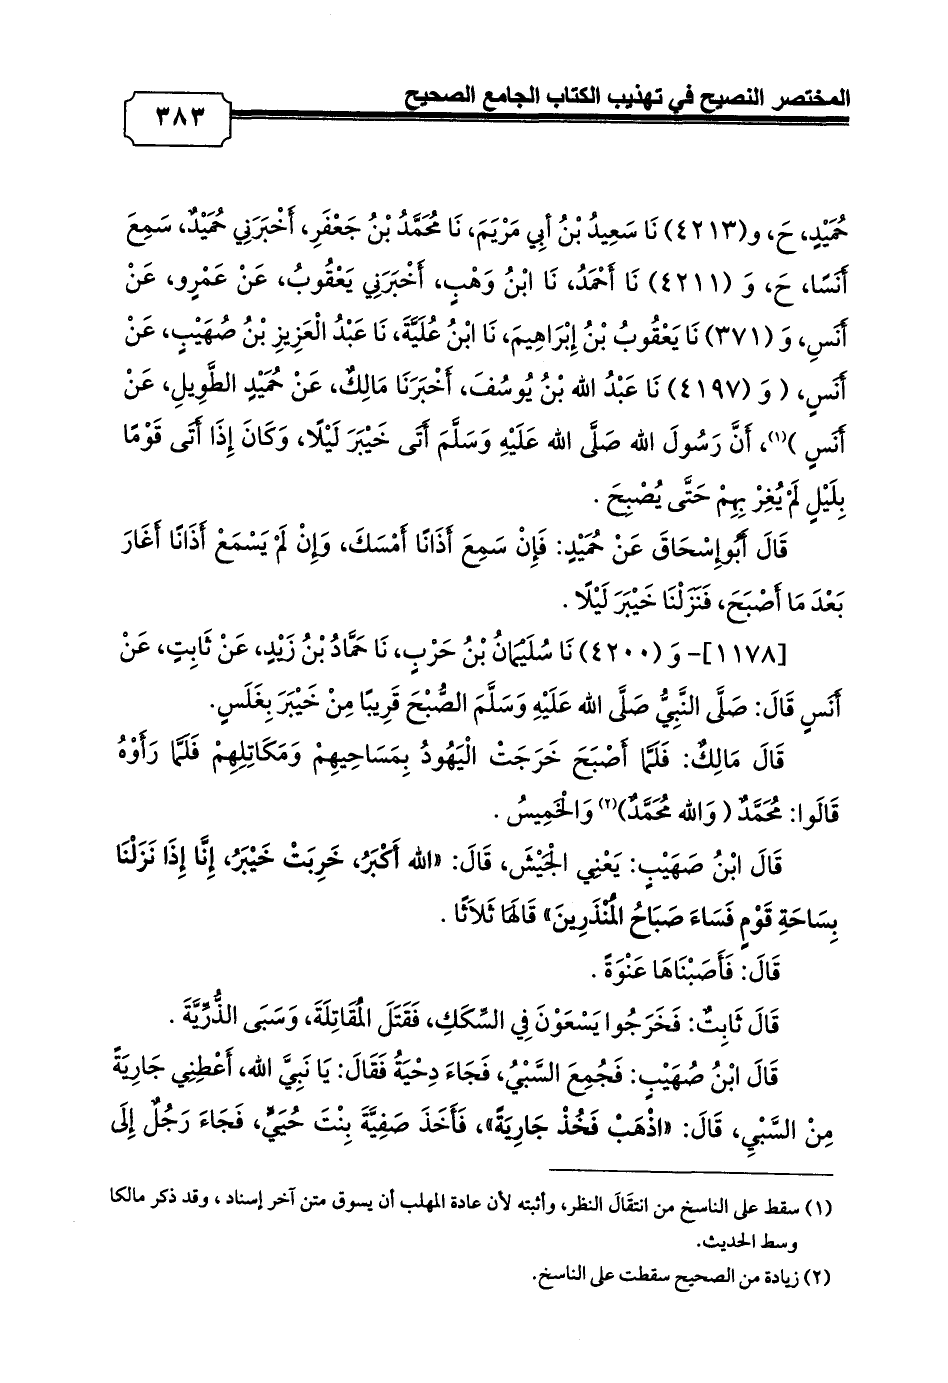 المختصر النصيح في تهذيب الكتاب الجامع الصحيح
٣٨٣
حُمَيْدٍ، حَ، و(٤٢١٣) نَا سَعِيدُ بْنُ أبِي مَرْيَمَ، نَا مُحَمَّدُ بْنُ جَعْفَرٍ، أَخْبَرَنِي حُمَيْدٌ، سَمِعَ
أَنَسًا، حَ، وَ (٤٢١١) نَا أَحْمَدُ، نَا ابْنُ وَهْبٍ، أَخْبَرَنِي يَعْقُوبُ، عَنْ عَمْرٍو، عَنْ
أَنَسٍ، وَ (٣٧١) نَا يَعْقُوبُ بْنُ إِبْرَاهِيمَ، نَا ابْنُ عُلَيَّةَ، نَا عَبْدُ الْعَزِيزِ بْنُ صُهَيْبٍ، عَنْ
أَنَسٍ، ( وَ (٤١٩٧) نَا عَبْدُ الله بْنُ يُوسُفَ، أَخْبَرَنَا مَالِكٌ، عَنْ حُمَيْدٍ الطَّوِيلِ، عَنْ
أَنَسٍ )(١)، أَنَّ رَسُولَ الله صَلَّى الله عَلَيْهِ وَسَلَّمَ أَتَى خَيْبَرَ لَيْلًا، وَكَانَ إِذَا أَتَى قَوْمًا
بِلَيْلٍ لَمْ يُغِرْ بِهِمْ حَتَّى يُصْبِحَ .
قَالَ أَبُوإِسْحَاقَ عَنْ حُمَيْدٍ: فَإِنْ سَمِعَ أَذَانًا أَمْسَكَ، وَإِنْ لَمْ يَسْمَعْ أَذَانًا أَغَارَ
بَعْدَ مَا أَصْبَحَ، فَنَزَلْنَا خَيْبَرَ لَيْلًا .
[١١٧٨]- وَ (٤٢٠٠) نَا سُلَيْمَانُ بْنُ حَرْبٍ، نَا حَمَّادُ بْنُ زَيْدٍ، عَنْ ثَابِتٍ، عَنْ
أَنَسٍ قَالَ: صَلَّى النَّبِيُّ صَلَّى الله عَلَيْهِ وَسَلَّمَ الصُّبْحَ قَرِيبًا مِنْ خَيْبَرَ بِغَلَسٍ.
قَالَ مَالِكٌ: فَلَمَّا أَصْبَحَ خَرَجَتْ الْيَهُودُ بِمَسَاحِيهِمْ وَمَكَاتِلِهِمْ فَلَمَّا رَأَوْهُ
قَالُوا: مُحَمَّدٌ ( وَالله مُحَمَّدٌ)(٢) وَالْخَمِيسُ .
قَالَ ابْنُ صَهَيْبٍ: يَعْنِي الْجَيْشَ، قَالَ: «الله أَكْبَرُ، خَرِبَتْ خَيْبَرُ، إِنَّا إِذَا نَزَلْنَا
بِسَاحَةِ قَوْمٍ فَسَاءَ صَبَاحُ الْمُنْذَرِينَ» قَالَهَا ثَلاَثًا .
قَالَ: فَأَصَبْنَاهَا عَنْوَةً .
قَالَ ثَابِتٌ: فَخَرَجُوا يَسْعَوْنَ فِي السِّكَكِ، فَقَتَلَ الْمُقَاتِلَةَ، وَسَبَى الذُّرِّيَّةَ .
قَالَ ابْنُ صُهَيْبٍ: فَجُمِعَ السَّبْيُ، فَجَاءَ دِحْيَةُ فَقَالَ: يَا نَبِيَّ الله، أَعْطِنِي جَارِيَةً
مِنْ السَّبْيِ، قَالَ: «اذْهَبْ فَخُذْ جَارِيَةً»، فَأَخَذَ صَفِيَّةَ بِنْتَ حُيَيٍّ، فَجَاءَ رَجُلٌ إِلَى
(١) سقط على الناسخ من انتقَالَ النظر، وأثبته لأن عادة المهلب أن يسوق متن آخر إسناد ، وقد ذكر مالكا
وسط الحديث.
(٢) زيادة من الصحيح سقطت على الناسخ.